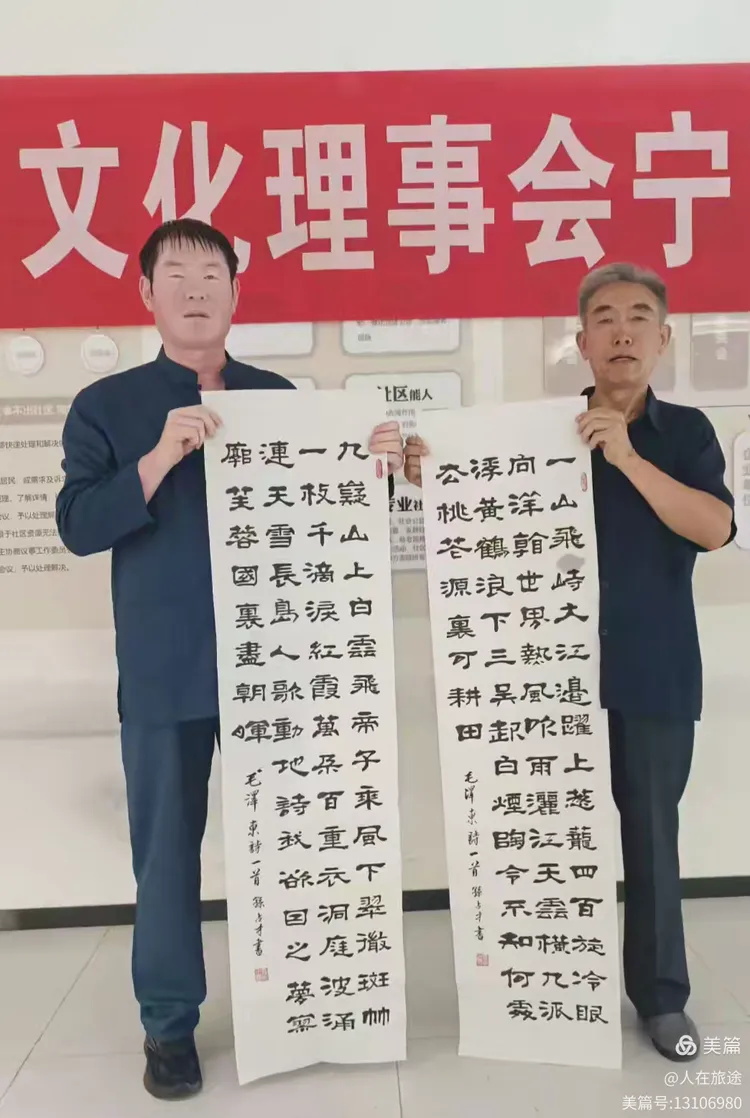 文化理事会宁
社区能人
专业社
事不出社区
会议、予以处理解决。
九嶷山上白雲飛帝子乘風下翠微斑竹
一枝千滴淚紅霞萬朵百重衣洞庭波涌
連天雪長島人歌動地詩我欲因之夢寥
廓芙蓉國裏盡朝暉
毛澤東詩一首 孫占才書
一山飛峙大江邊躍上蔥龍四百旋冷眼
向洋看世界熱風吹雨灑江天雲橫九派
浮黃鶴浪下三吳起白煙陶令不知何處
去桃花源裏可耕田
毛澤東詩一首 孫占才書
美篇
@人在旅途
美篇号:13106980